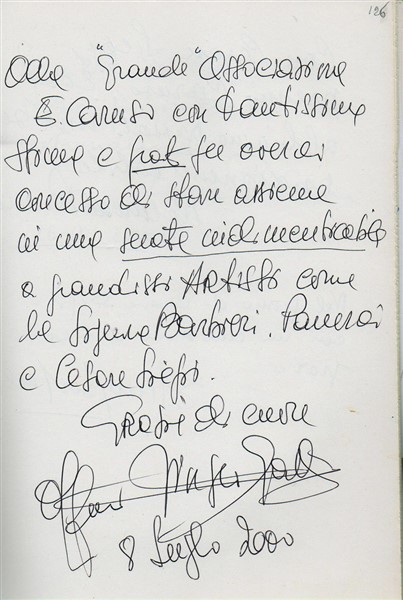 126
Alla "Grande" Associazione
E. Caruso con tantissima
stima e per averci
concesso di stare assieme
in una serata indimenticabile
a grandissi Artisti come
la Signora Barbieri, Panerai
e Cesare Siepi.
Grazie di cuore
8 Luglio 2000